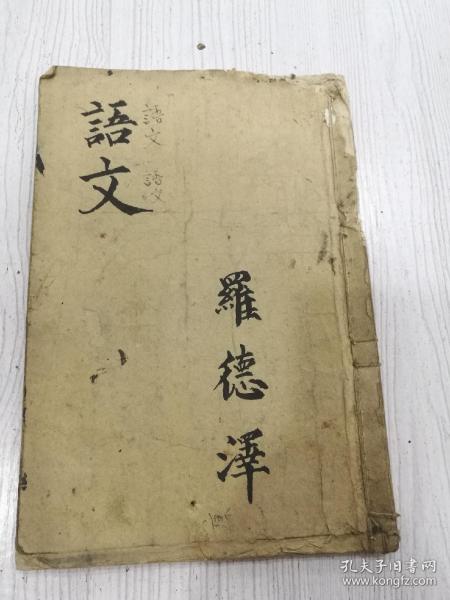 語文
語文
語文
羅德澤
孔夫子旧书网
www.kongfz.com